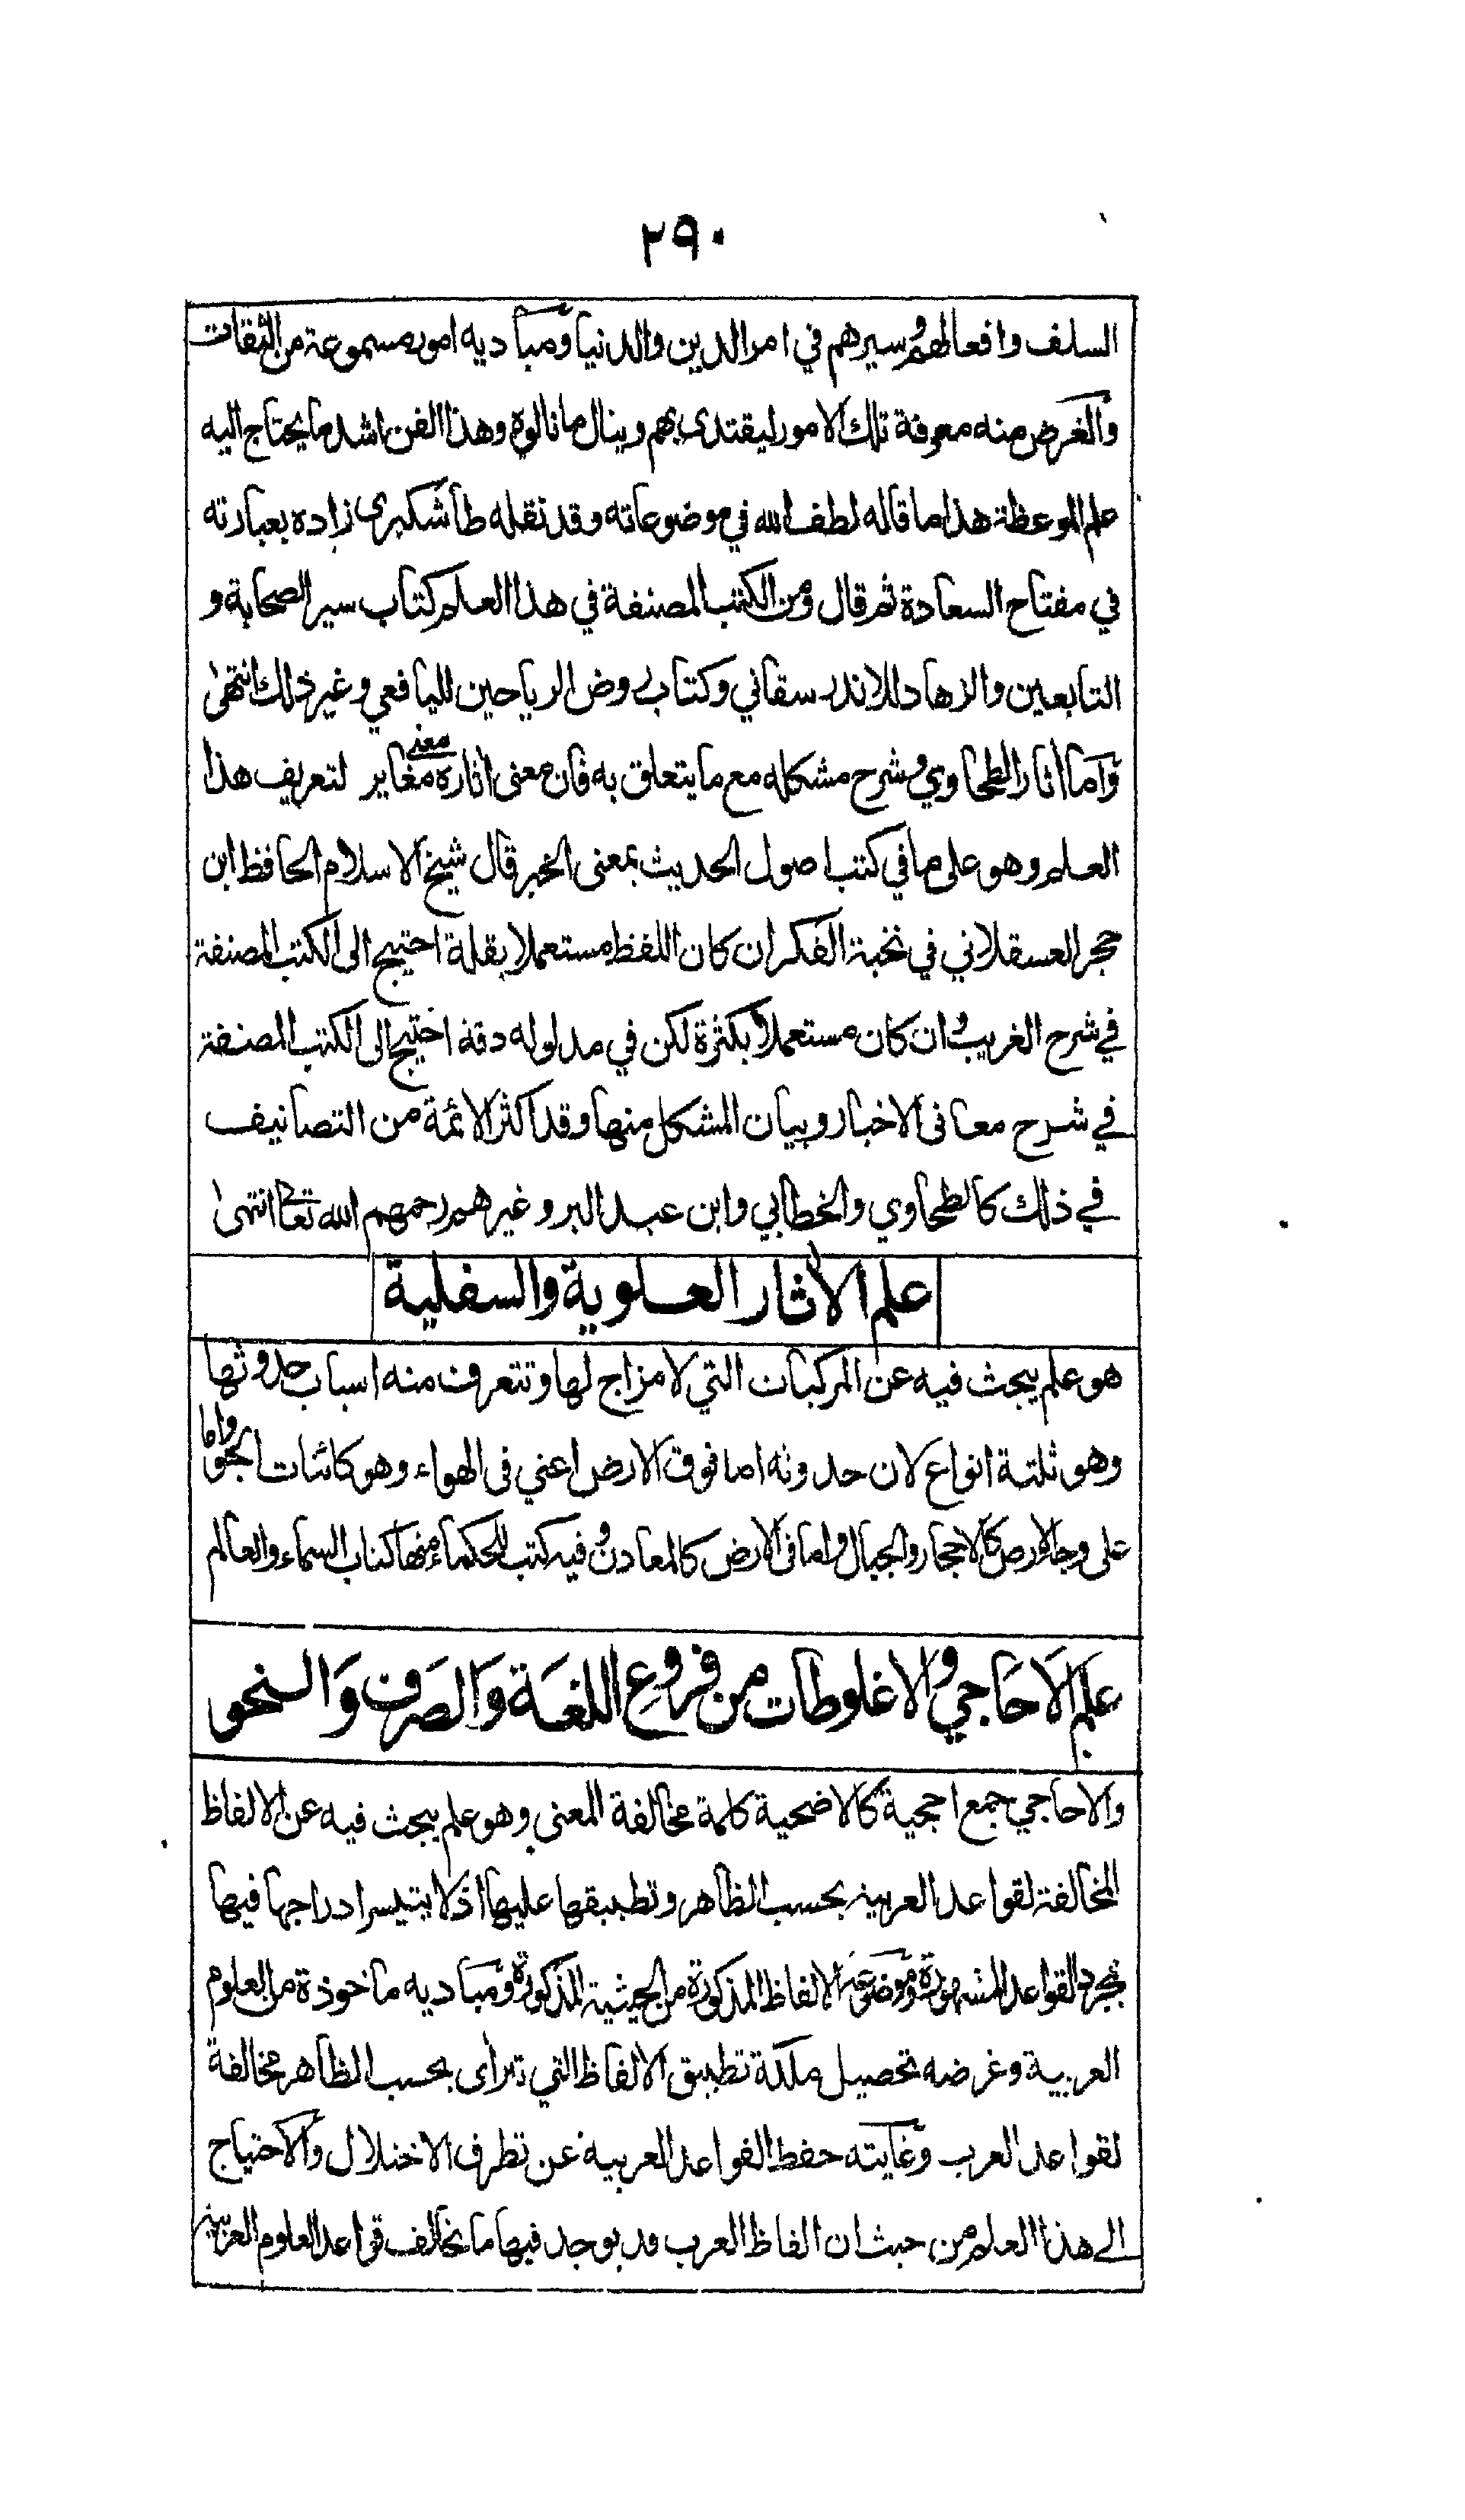 ٢٩٠
السلف وافعالهم وسيرهم في امر الدين والدنيا ومباديه امور مسموعة من الثقات
والغرض منه معرفة تلك الامور ليقتدى بهم وينال ما نالوه وهذا الفن اشد ما يحتاج اليه
علم الموعظة هذا ما قاله لطف الله في موضوعاته وقد نقله طاشكبرى زاده بعبارته
في مفتاح السعادة ثم قال ومن الكتب المصنفة في هذا العلم كتاب سير الصحابة و
التابعين والزهاد للاندرسقاني وكتاب روض الرياحين لليافعي وغير ذلك انتهى
واما اثار الطحاوي وشرح مشكله مع ما يتعلق به فان معنى اثاره معنى مغاير لتعريف هذا
العلم وهو على ما في كتب اصول الحديث بمعنى الخبر قال شيخ الاسلام الحافظ ابن
حجر العسقلاني في نخبة الفكر ان كان اللفظ مستعملا بقلة احتيج الى الكتب المصنفة
في شرح الغريب وان كان مستعملا بكثرة لكن في مدلوله دقة احتيج الى الكتب المصنفة
في شرح معانى الاخبار وبيان المشكل منها وقد اكثر الائمة من التصانيف
في ذلك كالطحاوي والخطابي وابن عبد البر وغيرهم رحمهم الله تعا انتهى
علم الأثار العلوية والسفلية
هو علم يبحث فيه عن المركبات التي لا مزاج لها وتتعرف منه اسباب حدوثها
وهو ثلثة انواع لان حدوثه اما فوق الارض اعني فى الهواء وهو كائنات الجو واما
على وجه الارض كالاحجار والجبال واما فى الارض كالمعادن وفيه كتب للحكماء منها كتاب السماء والعالم
علم الاَحَاجي والاغلوطات من فروعِ اللغَة وَالصَرف وَالنحو
والاحاجي جمع احجية كالاضحية كلمة مخالفة المعنى وهو علم يبحث فيه عن الالفاظ
المخالفة لقواعد العربية بحسب الظاهر وتطبيقها عليها اذ لا يتيسر ادراجها فيها
بمجرد القواعد المشهورة وموضوعه الالفاظ المذكورة من الحيثية المذكورة ومباديه ماخوذة من العلوم
العربية وغرضه تحصيل ملكة تطبيق الالفاظ التي تترأى بحسب الظاهر مخالفة
لقواعد العرب وغايته حفظ القواعد العربية عن تطرف الاختلال والاحتياج
الى هذا العلم من حيث ان الفاظ العرب قد يوجد فيها ما يخالف قواعد العلوم العربية